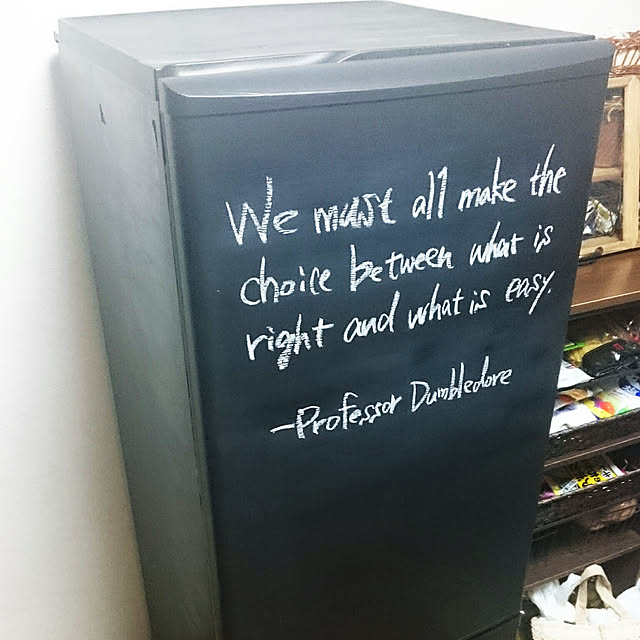 We must all make the
choice between what is
right and what is easy.
-Professor Dumbledore